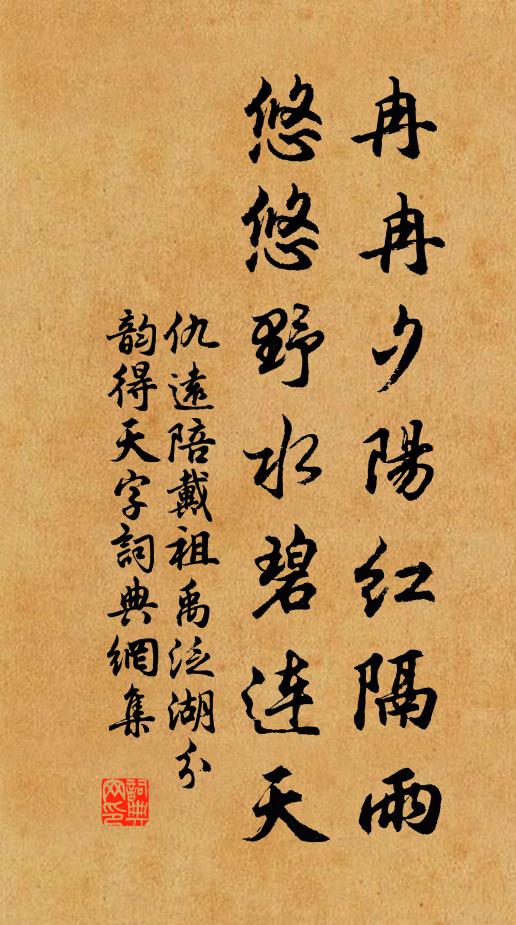 冉冉夕陽红隔雨
悠悠野水碧連天
仇遠陪戴祖禹泛湖分
韵得天字詞典網集
詞典
网印